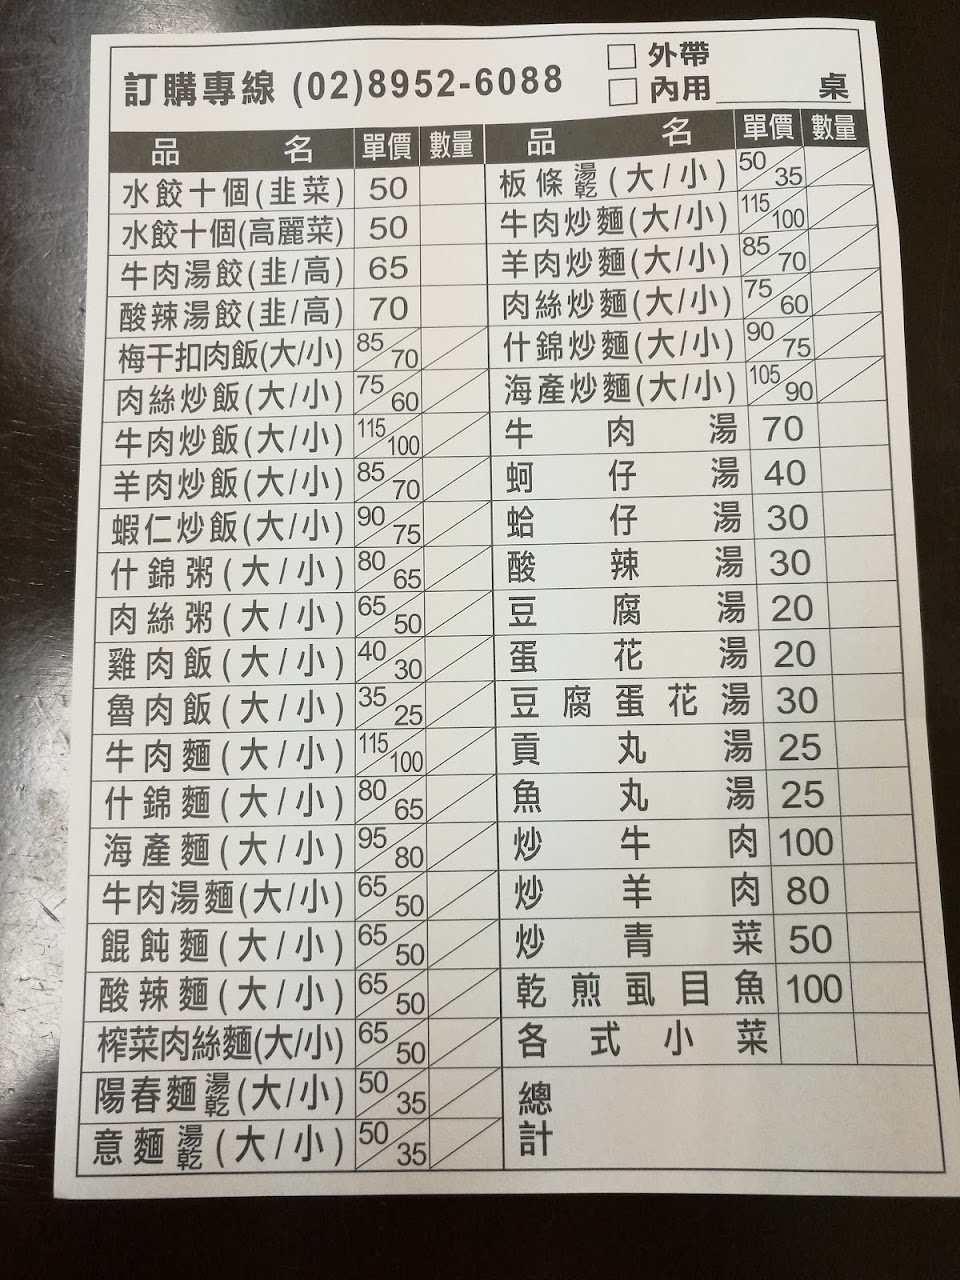 訂購專線 (02)8952-6088
□ 外帶
□ 內用______桌
品名 單價 數量
水餃十個(韭菜) 50
水餃十個(高麗菜) 50
牛肉湯餃(韭/高) 65
酸辣湯餃(韭/高) 70
梅干扣肉飯(大/小) 85/70
肉絲炒飯(大/小) 75/60
牛肉炒飯(大/小) 115/100
羊肉炒飯(大/小) 85/70
蝦仁炒飯(大/小) 90/75
什錦粥(大/小) 80/65
肉絲粥(大/小) 65/50
雞肉飯(大/小) 40/30
魯肉飯(大/小) 35/25
牛肉麵(大/小) 115/100
什錦麵(大/小) 80/65
海產麵(大/小) 95/80
牛肉湯麵(大/小) 65/50
餛飩麵(大/小) 65/50
酸辣麵(大/小) 65/50
榨菜肉絲麵(大/小) 65/50
陽春麵湯乾(大/小) 50/35
意麵湯乾(大/小) 50/35
品名 單價 數量
板條湯乾(大/小) 50/35
牛肉炒麵(大/小) 115/100
羊肉炒麵(大/小) 85/70
肉絲炒麵(大/小) 75/60
什錦炒麵(大/小) 90/75
海產炒麵(大/小) 105/90
牛肉湯 70
蚵仔湯 40
蛤仔湯 30
酸辣湯 30
豆腐湯 20
蛋花湯 20
豆腐蛋花湯 30
貢丸湯 25
魚丸湯 25
炒牛肉 100
炒羊肉 80
炒青菜 50
乾煎虱目魚 100
各式小菜
總計